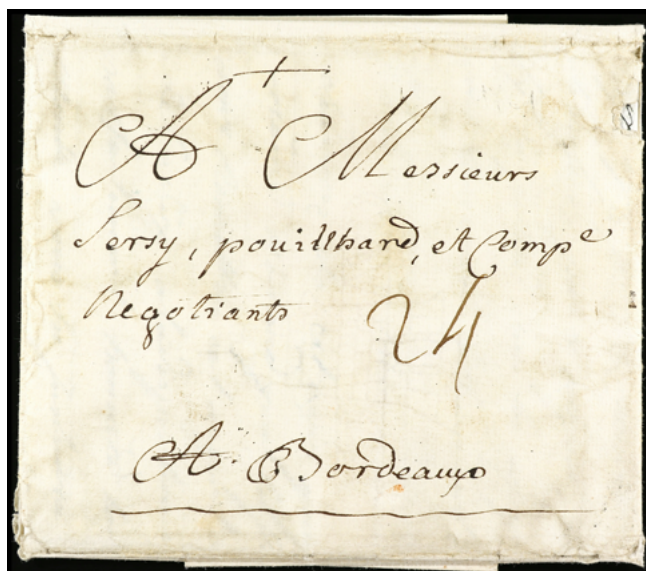 A Messieurs
Sersy, pouilhard, et Comp^e
Negotiants 24
A Bordeaux